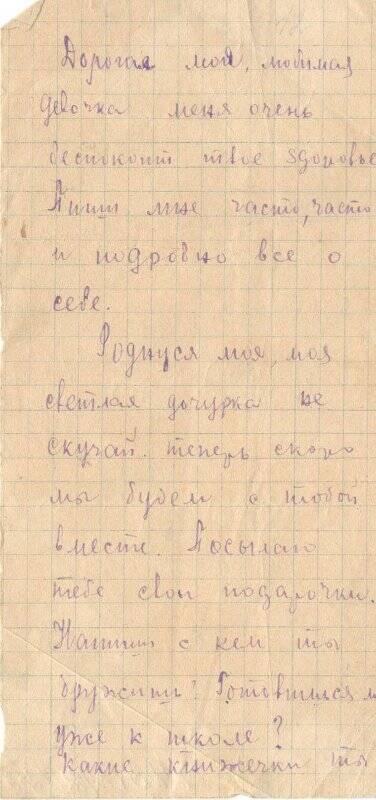 Дорогая моя, любимая
девочка меня очень
беспокоит твое здоровье
Пиши мне часто, часто
и подробно все о
себе.
Роднуся моя, моя
светлая дочурка не
скучай. теперь скоро
мы будем с тобой
вместе. Посылаю
тебе свои подарочки.
Напиши с кем ты
дружишь? Готовишься л
уже к школе?
Какие книжечки ты